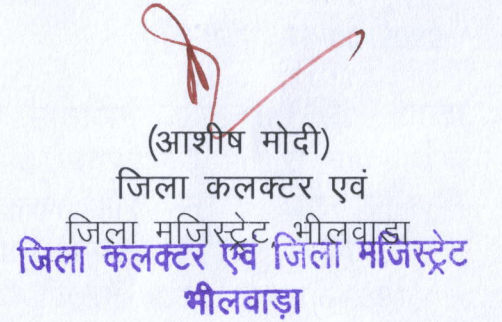 (आशीष मोदी)
जिला कलक्टर एवं
जिला मजिस्ट्रेट, भीलवाडा
जिला कलक्टर एवं जिला मजिस्ट्रेट
भीलवाड़ा